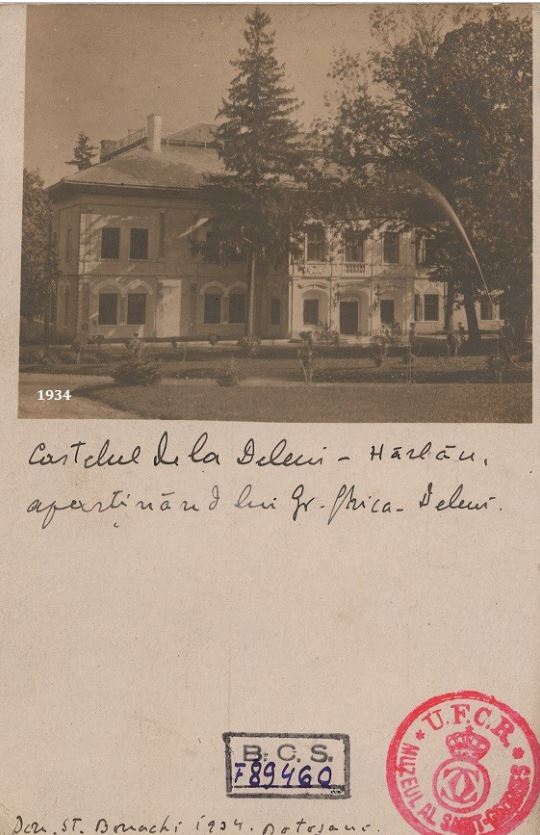 1934
Castelul de la Deleni - Hârlău,
aparținând lui Gr. Ghica - Deleni.
B.C.S.
F89460
* U.F.C.R. *
MUZEUL AL SAINT-GEORGES
Don. St. Bonachi 1934. Botoșani.